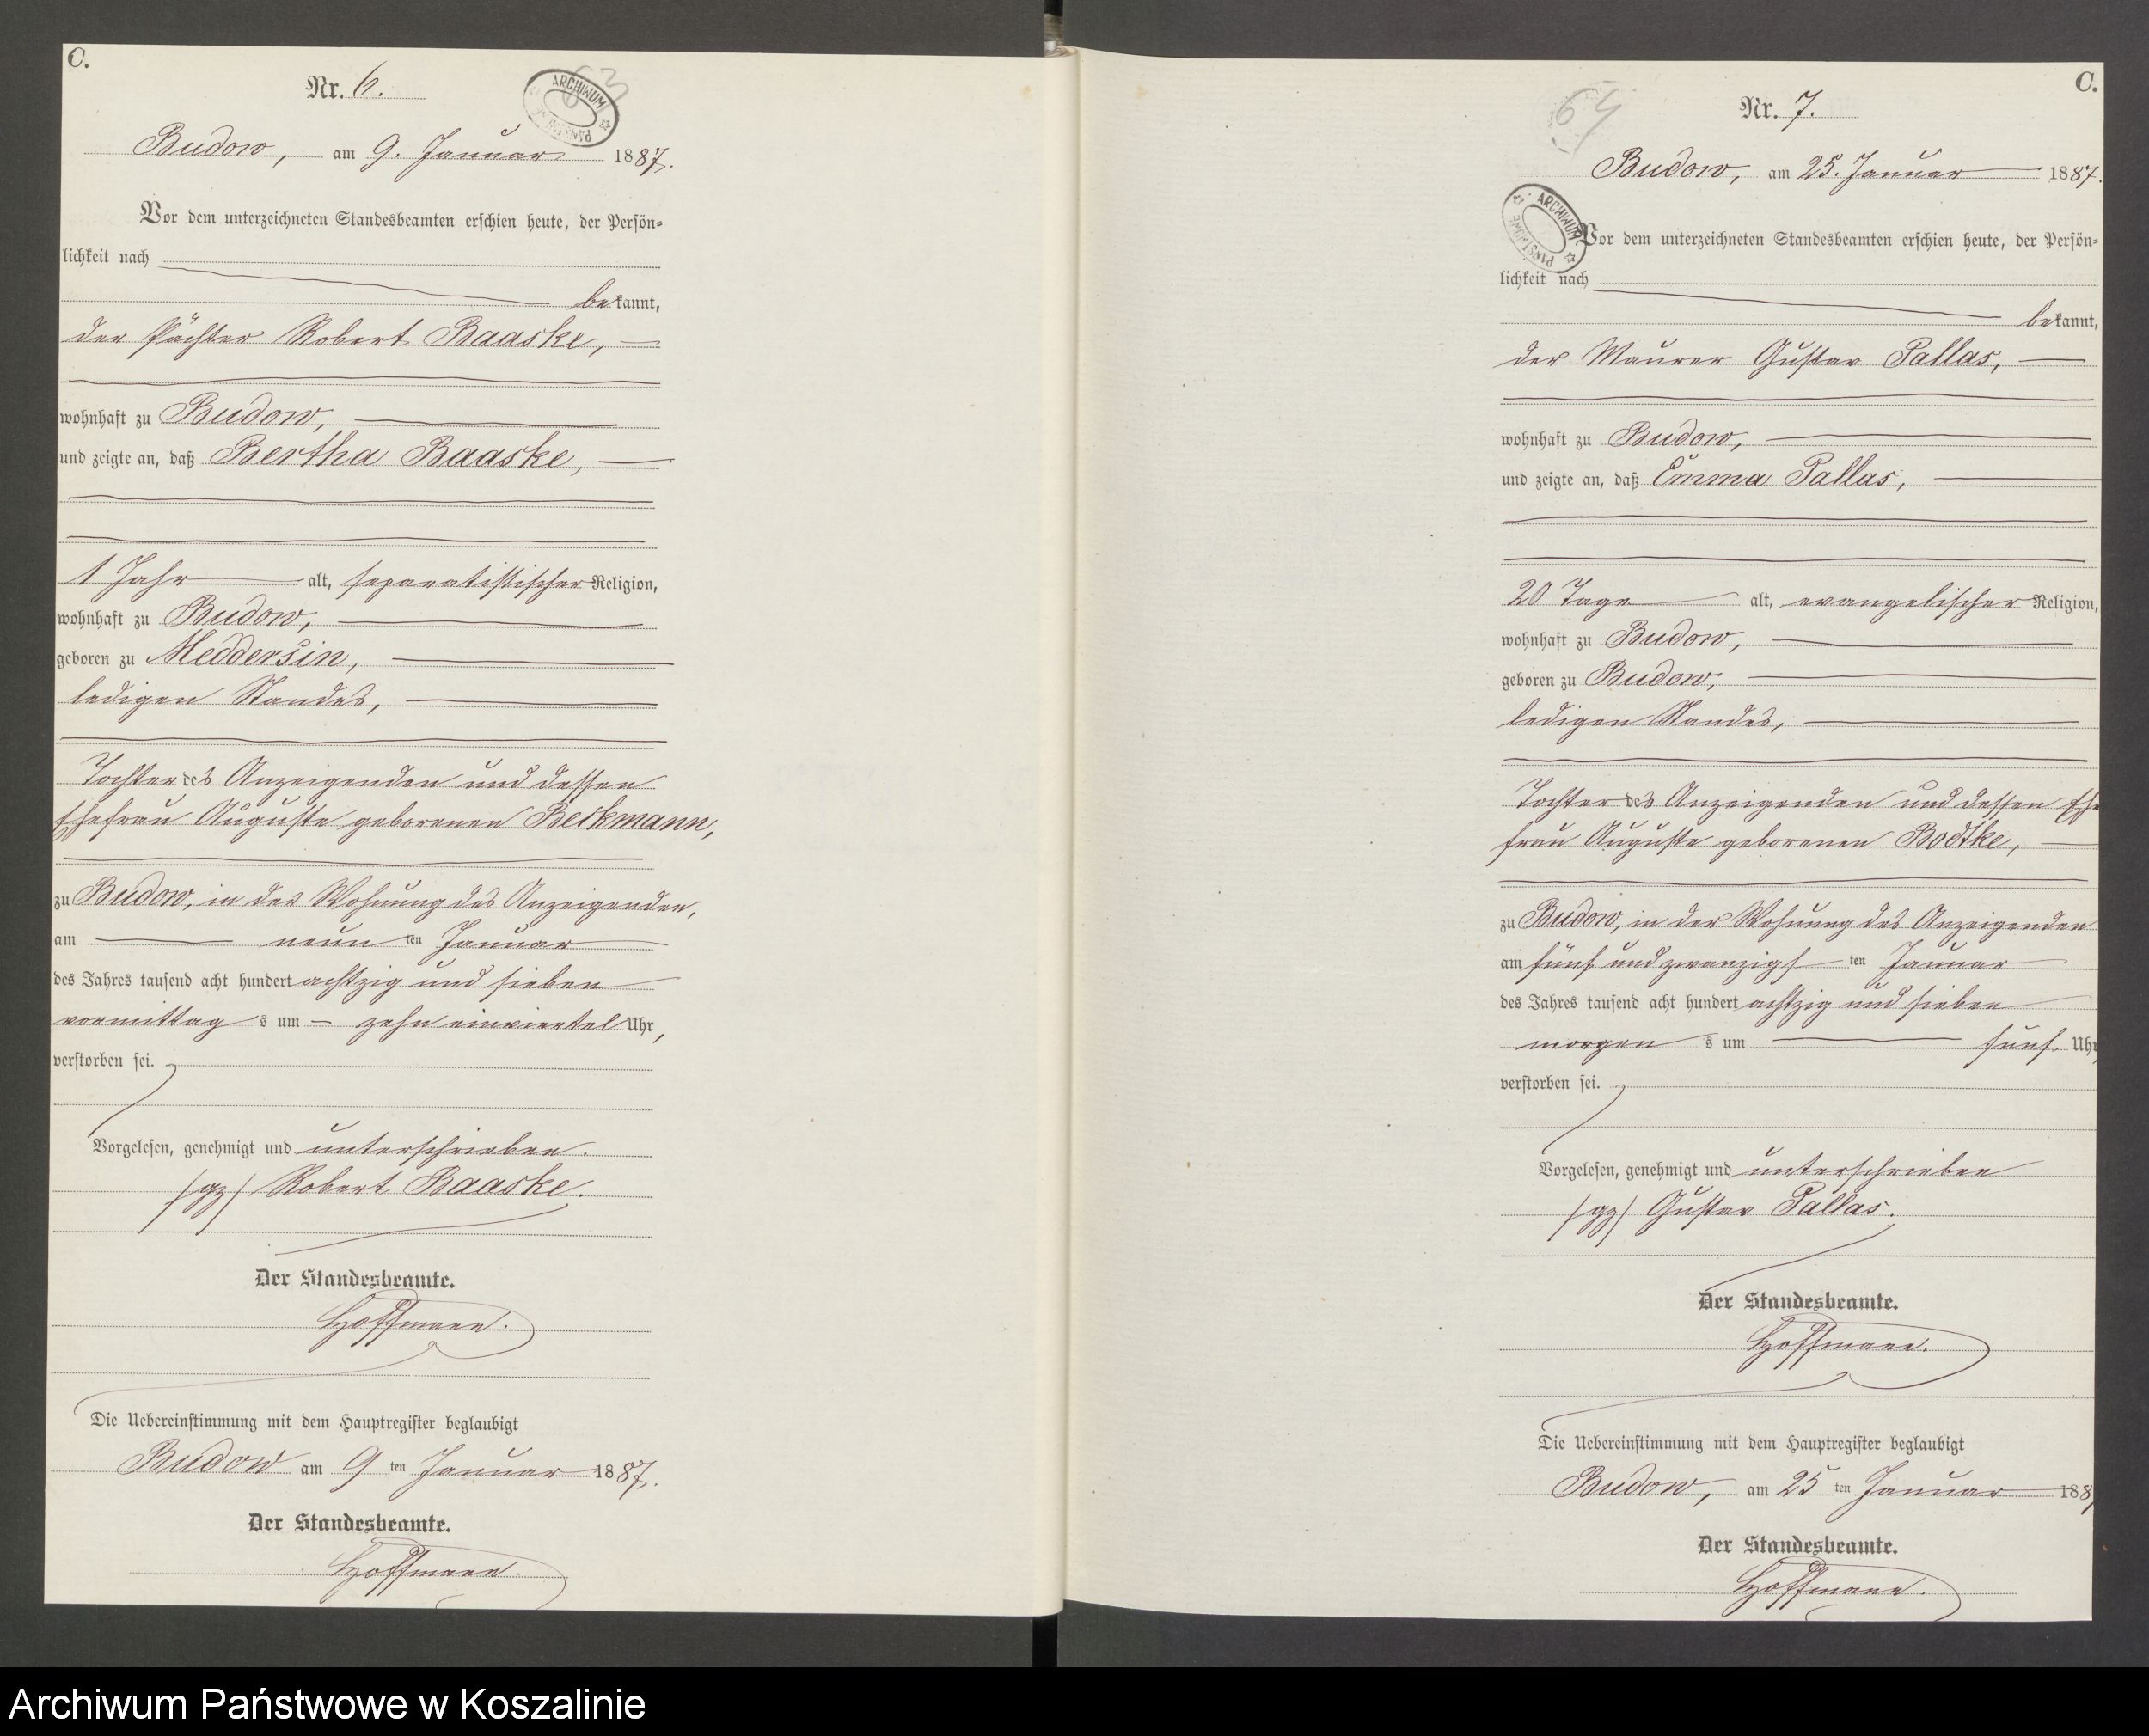 C.
Nr. 6.
63
ARCHIWUM
Budow, am 9. Januar 1887.
Vor dem unterzeichneten Standesbeamten erschien heute, der Persön-
lichkeit nach
bekannt,
der Pächter Robert Baaske,
wohnhaft zu Budow,
und zeigte an, daß Bertha Baaske,
1 Jahr alt, separatistischer Religion,
wohnhaft zu Budow,
geboren zu Meddersin,
ledigen Standes,
Tochter des Anzeigenden und dessen
Ehefrau Auguste geborenen Beckmann,
zu Budow, in der Wohnung des Anzeigenden,
am neun ten Januar
des Jahres tausend acht hundert achtzig und sieben
vormittag s um zehn einviertel Uhr,
verstorben sei.
Vorgelesen, genehmigt und unterschrieben.
(gz) Robert Baaske.
Der Standesbeamte.
Hoffmann.
Die Uebereinstimmung mit dem Hauptregister beglaubigt
Budow am 9 ten Januar 1887.
Der Standesbeamte.
Hoffmann.
C.
Nr. 7.
64
Budow, am 25. Januar 1887.
ARCHIWUM
Vor dem unterzeichneten Standesbeamten erschien heute, der Persön-
lichkeit nach
bekannt,
der Maurer Gustav Pallas,
wohnhaft zu Budow,
und zeigte an, daß Emma Pallas,
20 Tage alt, evangelischer Religion,
wohnhaft zu Budow,
geboren zu Budow,
ledigen Standes,
Tochter des Anzeigenden und dessen Ehe
frau Auguste geborenen Bodtke,
zu Budow, in der Wohnung des Anzeigenden
am fünf und zwanzigs ten Januar
des Jahres tausend acht hundert achtzig und sieben
morgen s um fünf Uhr,
verstorben sei.
Vorgelesen, genehmigt und unterschrieben
(gz) Gustav Pallas.
Der Standesbeamte.
Hoffmann.
Die Uebereinstimmung mit dem Hauptregister beglaubigt
Budow, am 25 ten Januar 188
Der Standesbeamte.
Hoffmann.
Archiwum Państwowe w Koszalinie